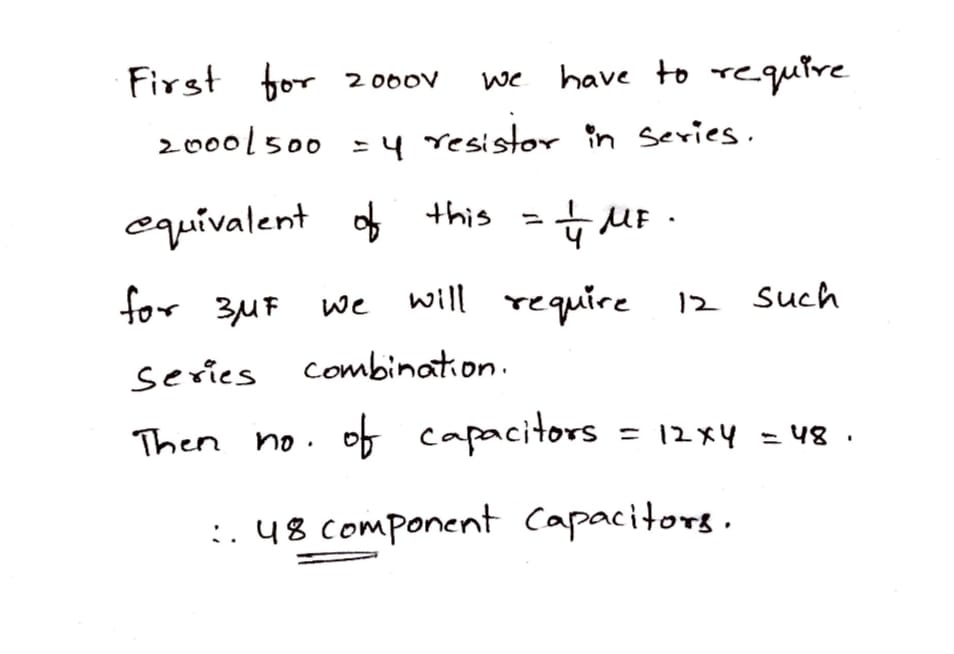 First for 2000V we have to require
2000/500 = 4 resistor in series.
equivalent of this = 1/4 μF.
for 3μF we will require 12 such
series combination.
Then no. of capacitors = 12×4 = 48.
∴ 48 component capacitors.